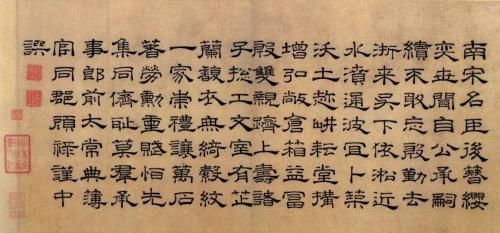 南宋名臣後簪纓
奕世聞自公承嗣
續不敢忘殷勤去
浙來吳下依松近
水濆通波宜卜築
沃土趁畊耘堂搆
增弘敞倉箱益富
殷雙親躋上壽諸
子總工文室有芝
蘭馥衣無綺縠紋
一家崇禮讓萬石
著勞勳重賜恒先
集同儕恥莫羣承
事郎前太常典簿
官同郡頋祿謹中
譔